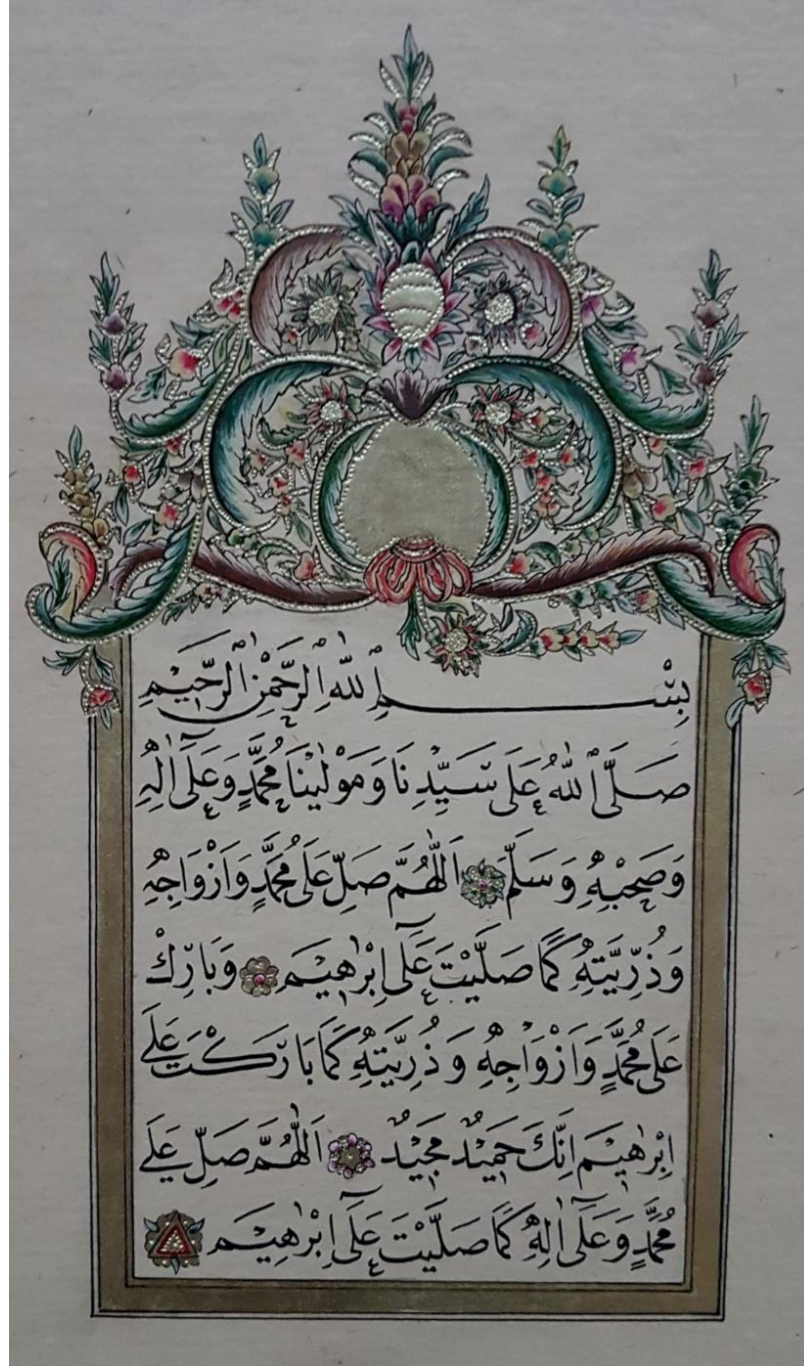 بِسْمِ ٱللّٰهِ ٱلرَّحْمٰنِ ٱلرَّحِيمِ
صَلَّى ٱللّٰهُ عَلَى سَيِّدِنَا وَمَوْلٰينَا مُحَمَّدٍ وَعَلَى اٰلِهِ
وَصَحْبِهِ وَسَلَّمَ اَللّٰهُمَّ صَلِّ عَلَى مُحَمَّدٍ وَاَزْوَاجِهِ
وَذُرِّيَّتِهِ كَمَا صَلَّيْتَ عَلَى اِبْرٰهِيمَ وَبَارِكْ
عَلَى مُحَمَّدٍ وَاَزْوَاجِهِ وَذُرِّيَّتِهِ كَمَا بَارَكْتَ عَلَى
اِبْرٰهِيمَ اِنَّكَ حَمِيدٌ مَجِيدٌ اَللّٰهُمَّ صَلِّ عَلَى
مُحَمَّدٍ وَعَلَى اٰلِهِ كَمَا صَلَّيْتَ عَلَى اِبْرٰهِيمَ